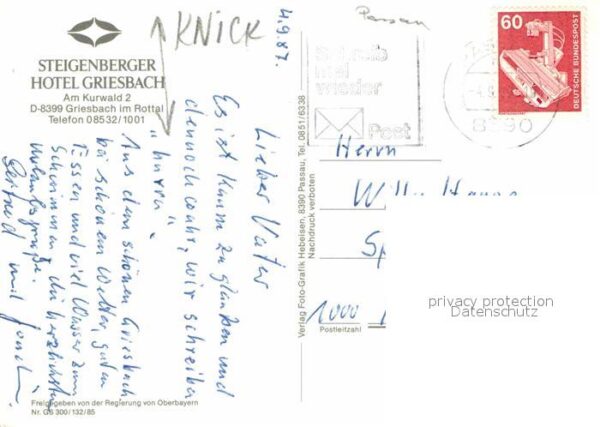 STEIGENBERGER
HOTEL GRIESBACH
Am Kurwald 2
D-8399 Griesbach im Rottal
Telefon 08532/1001
KNICK
4.9.87.
Lieber Vater
Es ist kaum zu glauben und
dennoch wahr, wir schreiben
Aus dem schönen Griesbach
bei schönem Wetter, guten
Essen und viel Wasser zum
Schwimmen die herzlichsten
Urlaubsgrüße.
Gertrud und
Freigegeben von der Regierung von Oberbayern
Nr. GS 300/132/85
Verlag Foto-Grafik Hebeisen, 8390 Passau, Tel. 0851/6338
Nachdruck verboten
Passau
Schreib
mal
wieder
Post
8390
60
DEUTSCHE BUNDESPOST
Herrn
1000
Postleitzahl
privacy protection
Datenschutz